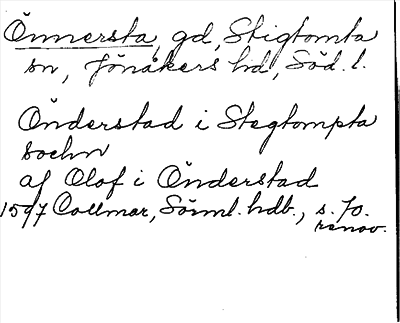 Önnersta, gd, Stigtomta
sn, Jönåkers hd, Söd. l.
Önderstad i Stegtompta
sochn
af Olof i Önderstad
1597 Collmar, Sörml. hdb., s. 70.
renov.